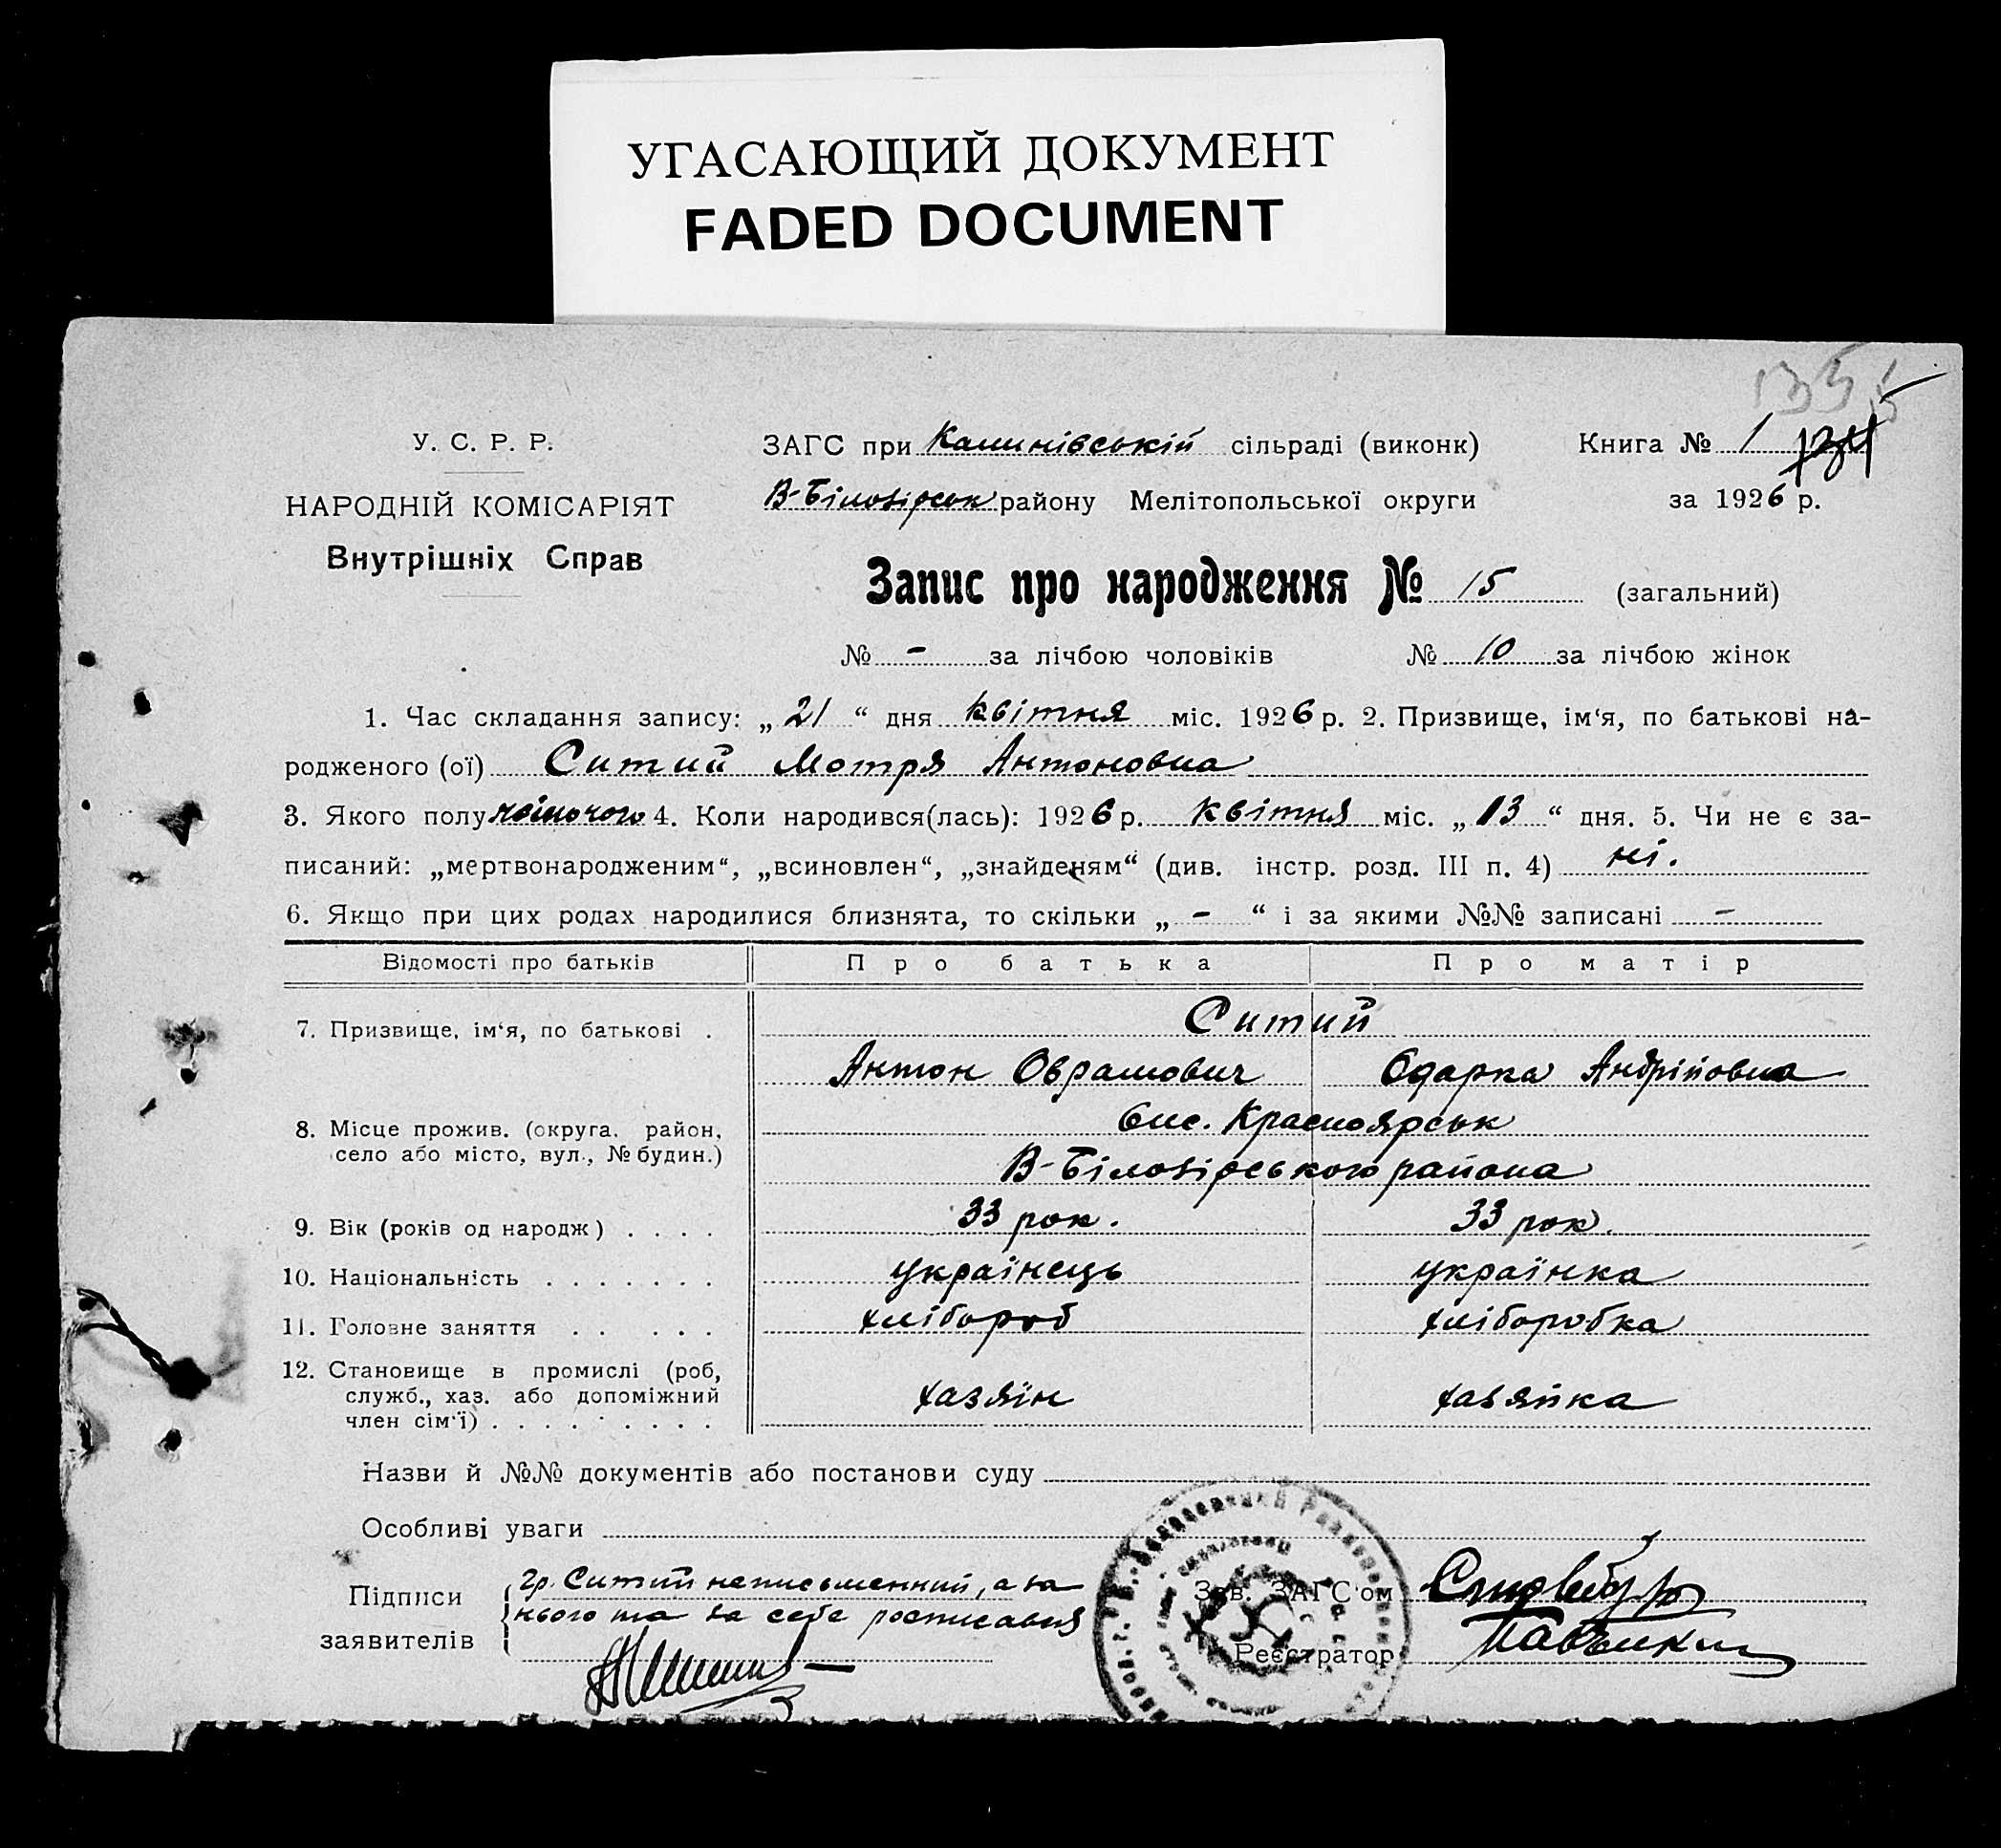 УГАСАЮЩИЙ ДОКУМЕНТ
FADED DOCUMENT
1355
У. С. Р. Р.
НАРОДНІЙ КОМІСАРІЯТ
Внутрішніх Справ
ЗАГС при Калинівській сільраді (виконк) Книга № 1
В-Білозірськ району Мелітопольської округи за 1926 р.
Запис про народження № 15 (загальний)
№ - за лічбою чоловіків № 10 за лічбою жінок
1. Час складання запису: „ 21 “ дня квітня міс. 1926 р. 2. Призвище, ім'я, по батькові на-
родженого (ої) Ситий Мотря Антоновна
3. Якого полу жіночого 4. Коли народився(лась): 1926 р. квітня міс. „ 13 “ дня. 5. Чи не є за-
писаний: „мертвонародженим“, „всиновлен“, „знайденям“ (див. інстр. розд. III п. 4) ні.
6. Якщо при цих родах народилися близнята, то скільки „ - “ і за якими №№ записані -
Відомості про батьків Про батька Про матір
7. Призвище, ім'я, по батькові . Ситий
Антон Оврамович Одарка Андріівовна
8. Місце прожив. (округа, район, село або місто, вул., № будин.)
Вис. Красноярськ
В-Білозірського района
9. Вік (років од народж) . . . . 33 рок. 33 рок.
10. Національність . . . . . . . українець українка
11. Головне заняття . . . . . хлібороб хліборобка
12. Становище в промислі (роб,
служб., хаз. або допоміжний
член сім'ї) . . . . . . . . хазяїн хазяйка
Назви й №№ документів або постанови суду
Особливі уваги
Підписи
заявителів
гр. Ситий неписьменний, а за
нього та за себе росписався
Зав. ЗАГС'ом
Реєстратор